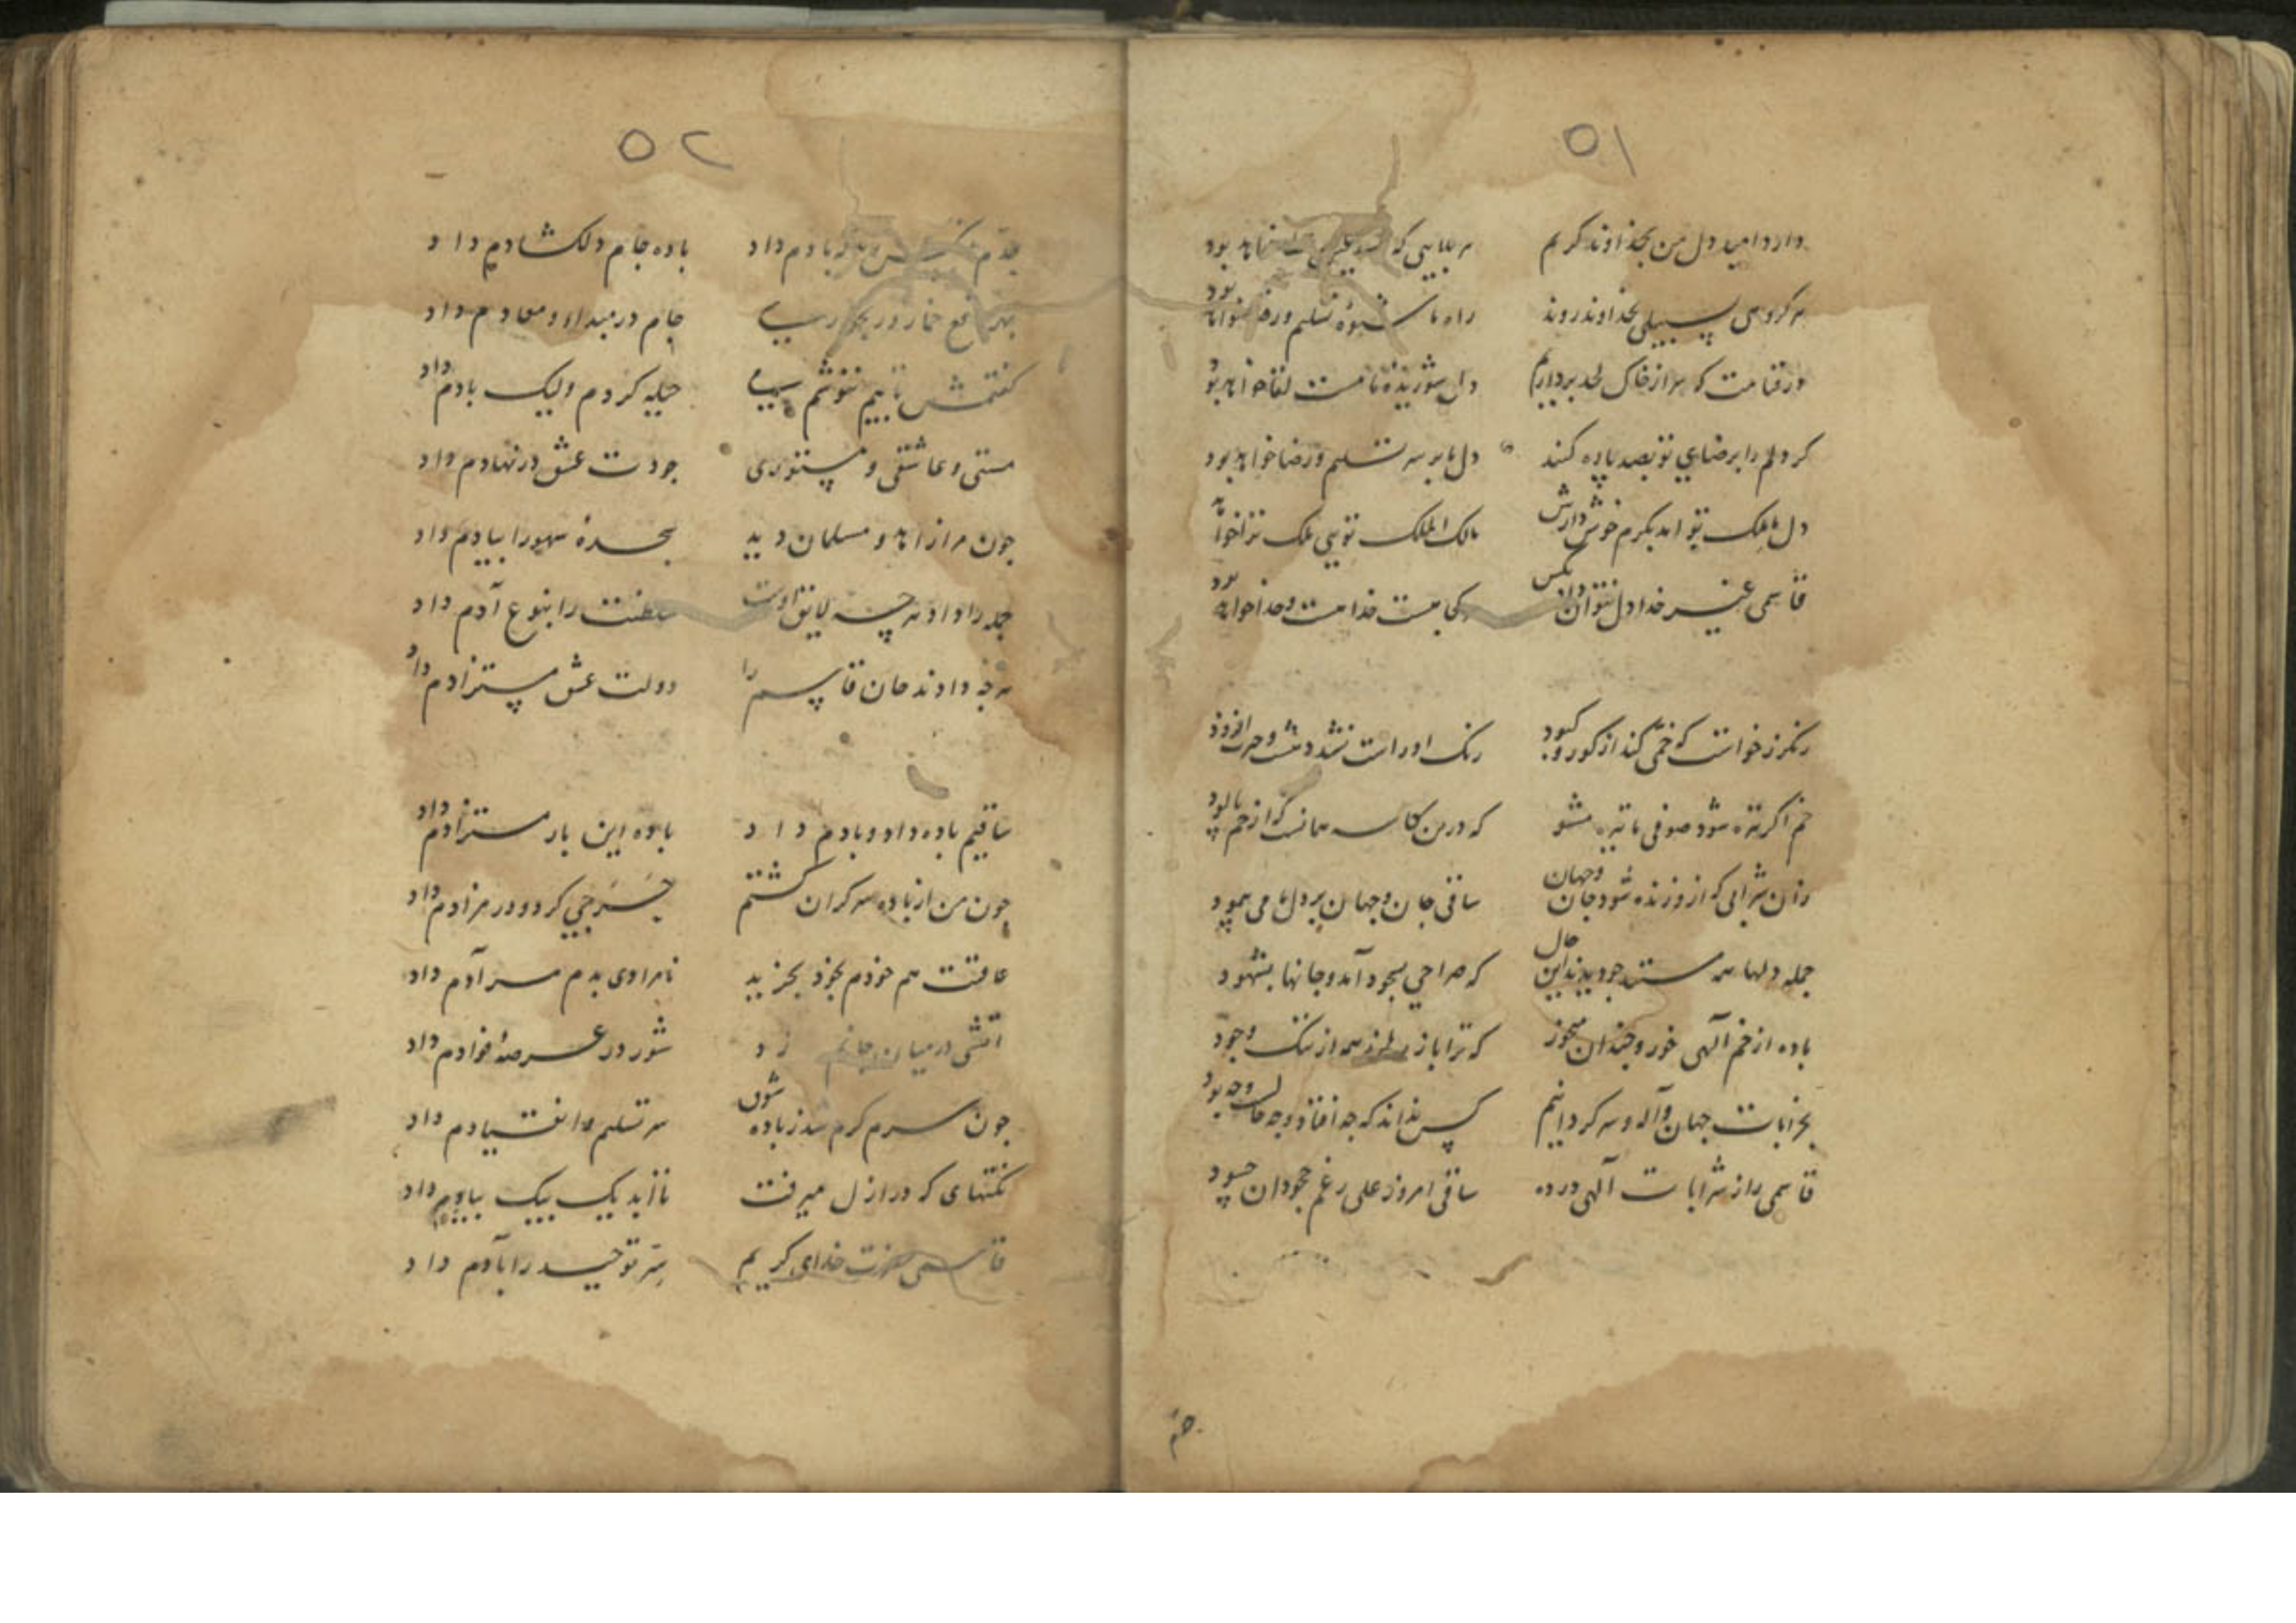 ۵۱
دارد امید دل من بخداوند کریم
هر گروهی بسبیلی بخداوند روند راه ما شیوه تسلیم و رضا خواهد بود
در قیامت که سر از خاک لحد برداریم دل شوریده ما مست لقا خواهد بود
گر دلم را برضای تو بصد پاره کنند دل ما بر سر تسلیم و رضا خواهد بود
دل ما ملک تو آمد بکرم خوش دارش مالک الملک تویی ملک ترا خواهد
قاسمی غیر خدا دل نتوان داد بکس خدا هست و خدا خواهد بود
رنگرز خواست که خمی کند از کور و کبود رنک او راست نشد وحسرت افزود
خم اگر تیره شود صوفی ما تیره مشو که درین کاسه همانست که از خم پالود
زان شرابی که ازو زنده شود جان و جهان ساقی جان و جهان بر دل ما می پیمود
جمله دلها همه مستند چو دیدند این حال که صراحی بسجود آمد و جانها بشهود
باده از خم الهی خور و چندان میخور که ترا باز همه از ننک وجود
بخرابات جهان آمد و سر کردانیم کس نداند که چه افتاد و چه حالست و چه بود
قاسمی را ز شرابات الهی در ده ساقی امروز علی رغم جحودان حسود
۵۲
باده جام دلکشادم داد
بهر دفع خمار در جام در مبداء و معادم داد
کفتمش تایبم ننوشم می حیله کردم ولیک بادم داد
مستی و عاشقی و مستوری جودت عشق در نهادم داد
چون مرا زاهد و مسلمان دید سجده سهو را بیادم داد
جمله را داد هر چه لایق اوست سلطنت را بنوع آدم داد
هر چه دادند جان قاسم را دولت عشق مستزادم داد
ساقیم باده داد و بادم داد باده این بار مستزادم داد
چون من از باده سر کران کشتم کرد و در مزادم داد
عاقبت هم خودم بخود بخرید نامرادی بدم مرادم داد
آتشی در میان جانم زد شور در عرصه فوادم داد
چون سرم کرم شد ز باده شوق سر تسلیم و انقیادم داد
نکتهای که در ازل میرفت تا ابد یک بیک بیادم داد
قاسمی حضرت خدای کریم سر توحید را بآدم داد